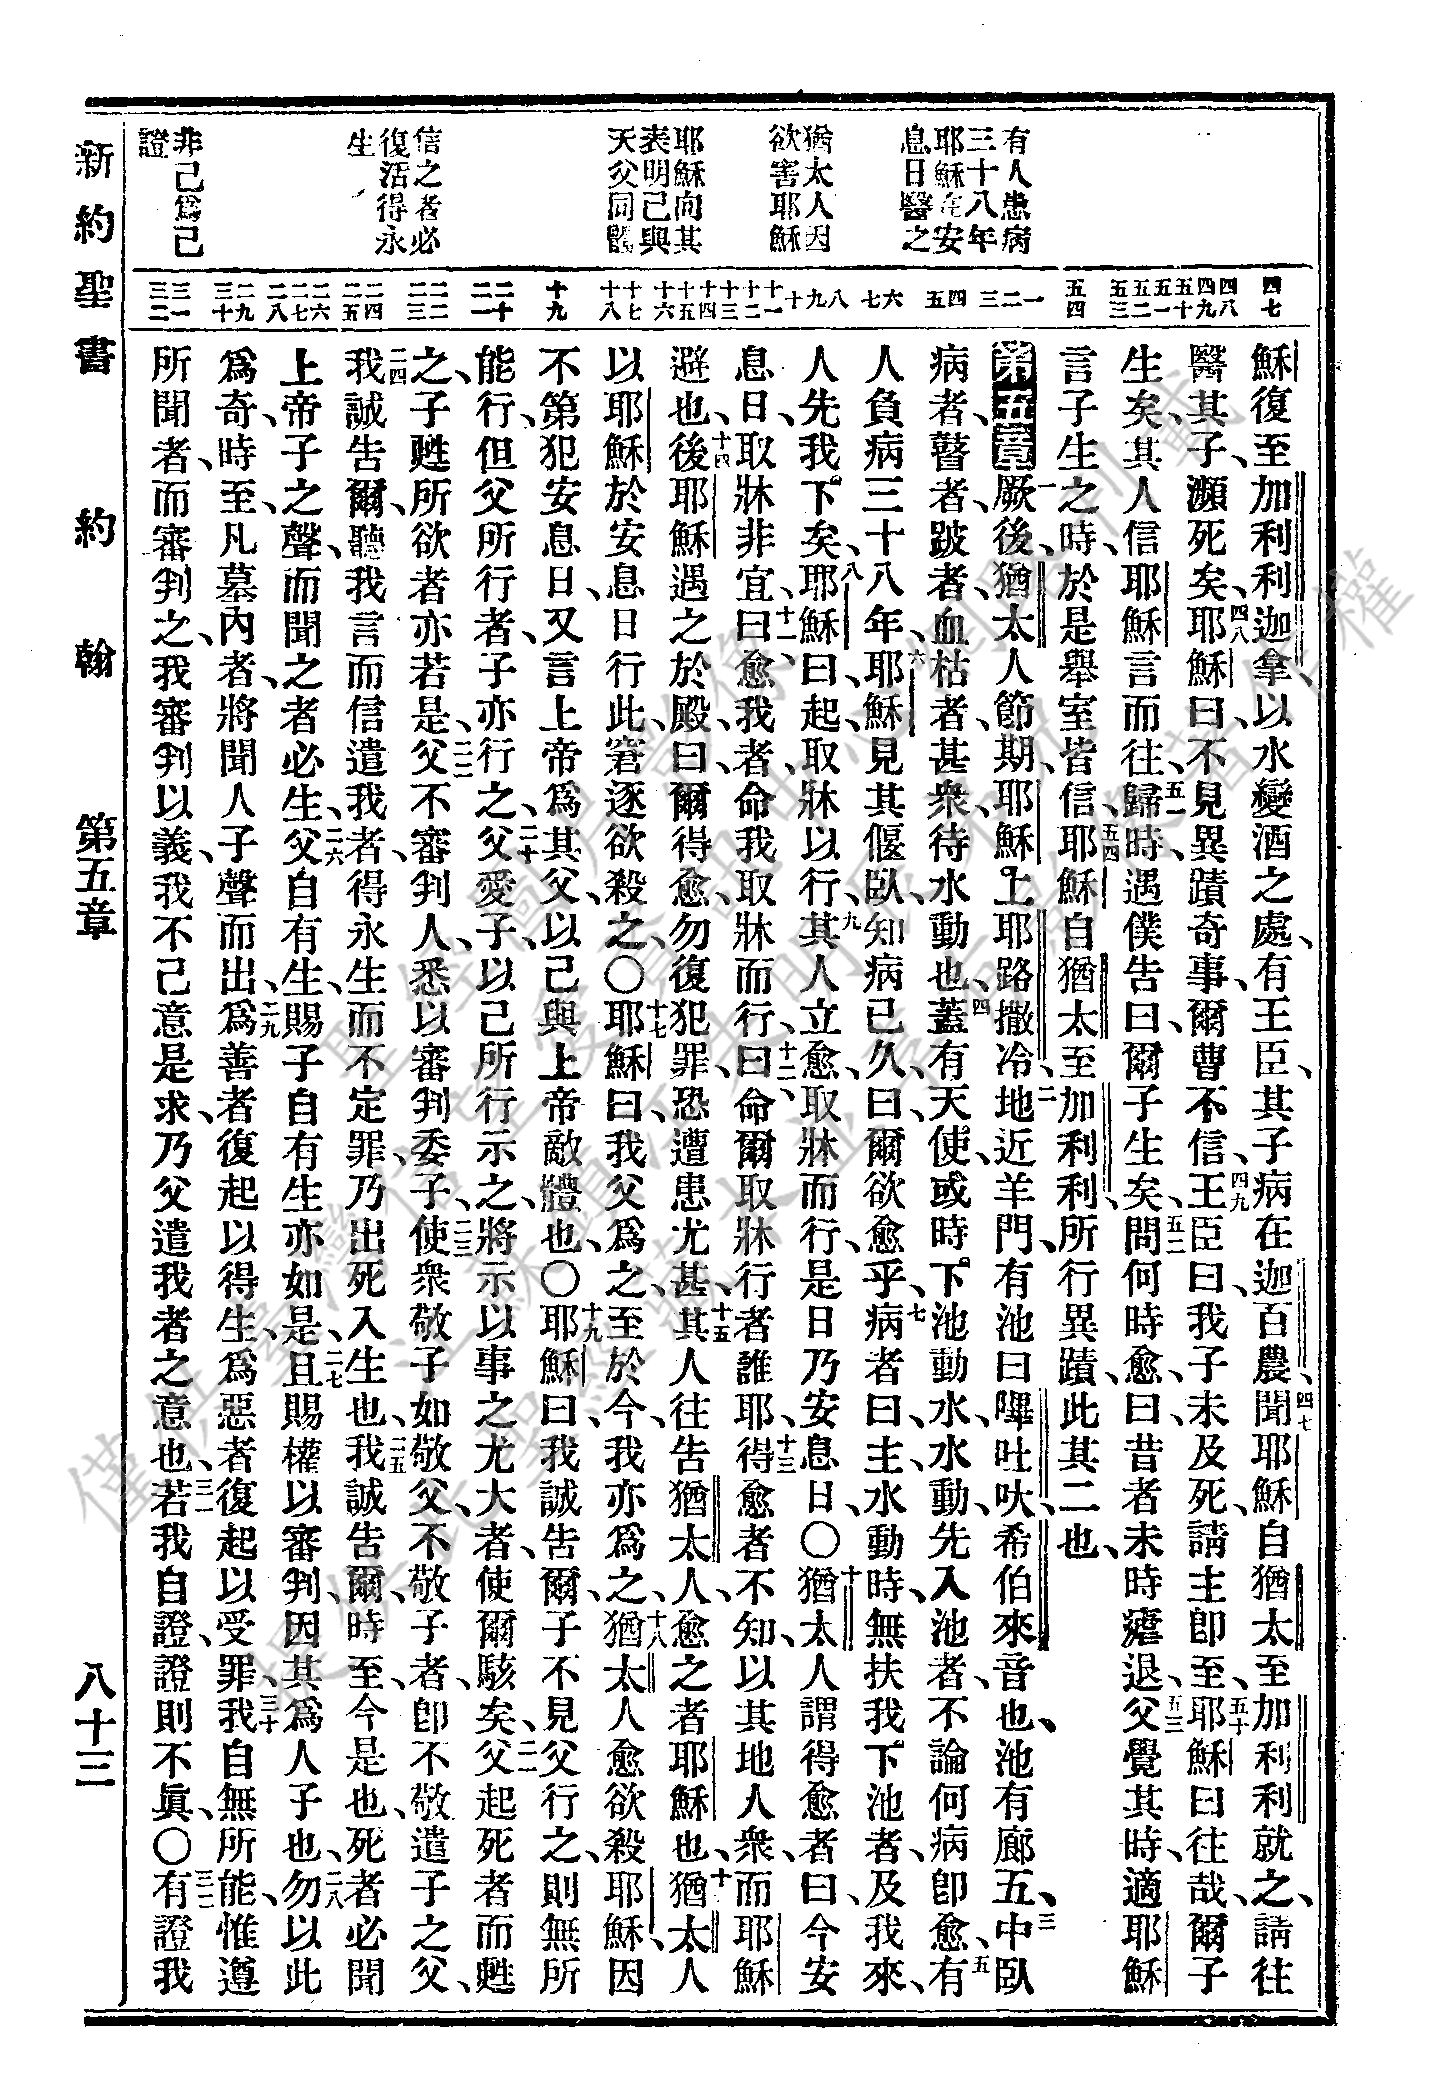 有人患病
三十八年
耶穌在安
息日醫之
猶太人因
欲害耶穌
耶穌向其
表明己與
天父同體
信之者必
復活得永
生
非己爲己
證
四七
四八
四九
五十
五一
五二
五三
五四
一
二
三
四
五
六
七
八
九
十
十一
十二
十三
十四
十五
十六
十七
十八
十九
二十
二一
二二
二三
二四
二五
二六
二七
二八
二九
三十
三一
三二
穌復至加利利迦拿、以水變酒之處、有王臣、其子病在迦百農、四七聞耶穌自猶太至加利利就之、請往
醫其子、瀕死矣、四八耶穌曰、不見異蹟奇事、爾曹不信、四九王臣曰、我子未及死、請主卽至、五十耶穌曰往哉、爾子
生矣、其人信耶穌言而往、五一歸時、遇僕告曰、爾子生矣、五二問何時愈、曰、昔者未時瘧退、五三父覺其時、適耶穌
言子生之時、於是舉室皆信、五四耶穌自猶太至加利利、所行異蹟、此其二也、
第五章一厥後、猶太人節期、耶穌上耶路撒冷、二地近羊門、有池曰嗶吐吠、希伯來音也、池有廊五、三中臥
病者、瞽者、跛者、血枯者甚衆、待水動也、四蓋有天使、或時下池動水、水動、先入池者、不論何病卽愈、五有
人負病三十八年、六耶穌見其偃臥、知病已久、曰、爾欲愈乎、七病者曰、主、水動時、無扶我下池者、及我來、
人先我下矣、八耶穌曰、起、取牀以行、九其人立愈、取牀而行、是日乃安息日、〇十猶太人謂得愈者曰、今安
息日、取牀非宜、十一曰、愈我者、命我取牀而行、十二曰、命爾取牀行者誰耶、十三得愈者不知、以其地人衆、而耶穌
避也、十四後耶穌遇之於殿、曰、爾得愈、勿復犯罪、恐遭患尤甚、十五其人往告猶太人、愈之者耶穌也、十六猶太人
以耶穌於安息日行此、窘逐欲殺之、〇十七耶穌曰、我父爲之、至於今、我亦爲之、十八猶太人愈欲殺耶穌、因
不第犯安息日、又言上帝爲其父、以己與上帝敵體也、〇十九耶穌曰、我誠告爾、子不見父行之、則無所
能行、但父所行者、子亦行之、二十父愛子、以己所行示之、將示以事之尤大者、使爾駭矣、二一父起死者而甦
之、子甦所欲者亦若是、二二父不審判人、悉以審判委子、二三使衆敬子如敬父、不敬子者、卽不敬遣子之父、
二四我誠告爾、聽我言而信遣我者、得永生而不定罪、乃出死入生也、二五我誠告爾、時至、今是也、死者必聞
上帝子之聲、而聞之者必生、二六父自有生、賜子自有生亦如是、二七且賜權以審判、因其爲人子也、二八勿以此
爲奇、時至、凡墓內者、將聞人子聲而出、二九爲善者復起以得生、爲惡者復起以受罪、三十我自無所能、惟遵
所聞者、而審判之、我審判以義、我不己意是求、乃父遣我者之意也、三一若我自證、證則不眞、〇三二有證我
新約聖書　約翰　第五章　八十三